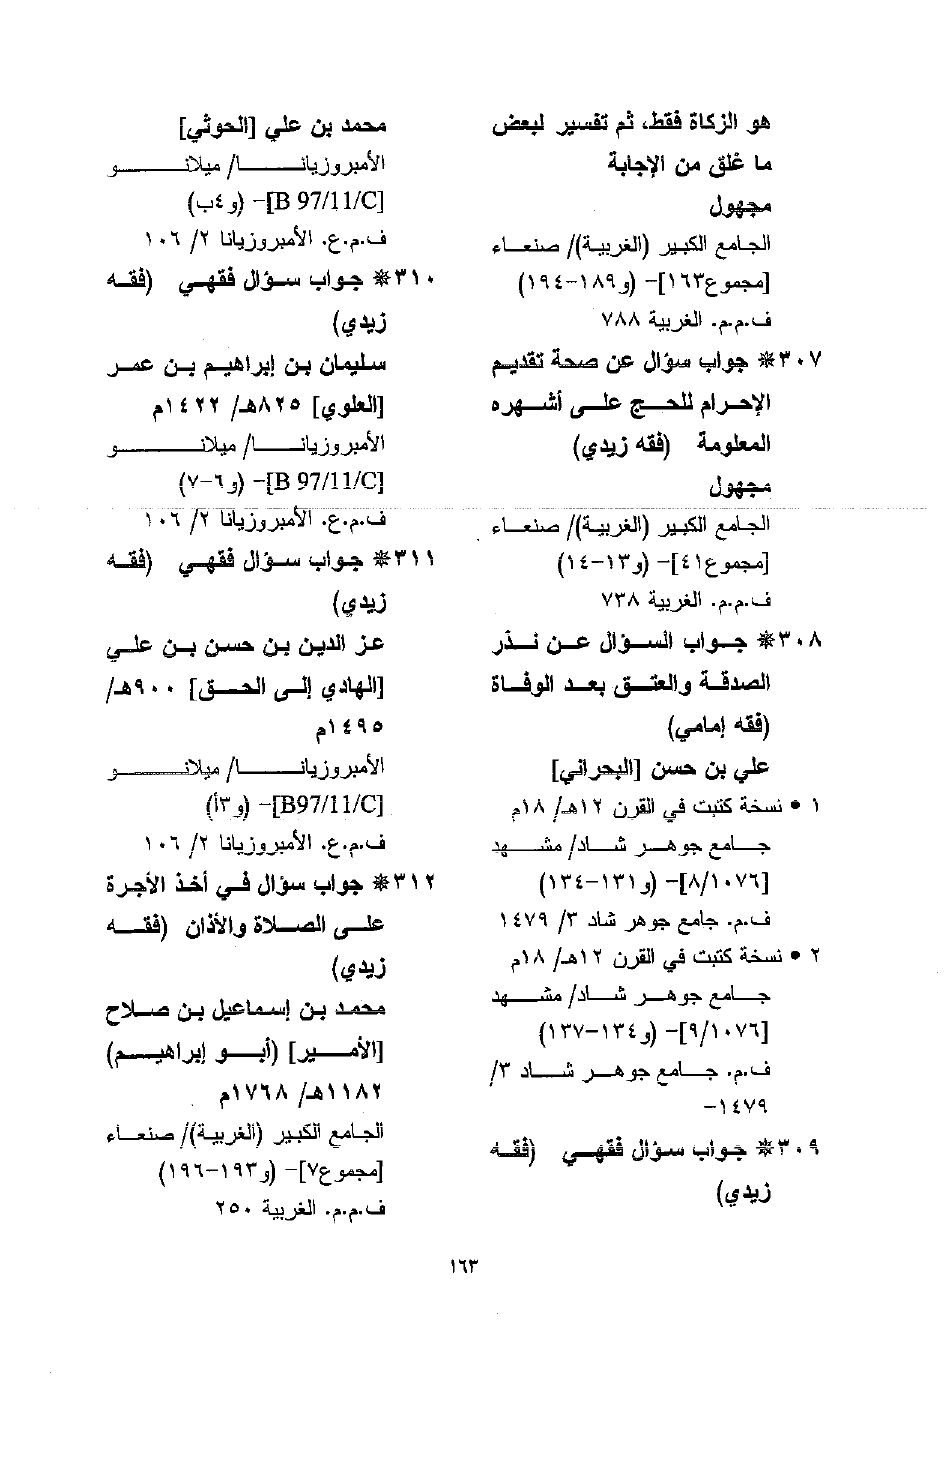 هو الزكاة فقط، ثم تفسير لبعض
ما غلق من الإجابة
مجهول
الجامع الكبير (الغربية)/ صنعاء
[مجموع١٦٣]- (و١٨٩-١٩٤)
ف.م.م. الغربية ٧٨٨
٣٠٧* جواب سؤال عن صحة تقديم
الإحرام للحج على أشهره
المعلومة (فقه زيدي)
مجهول
الجامع الكبير (الغربية)/ صنعاء
[مجموع٤١]- (و١٣-١٤)
ف.م.م. الغربية ٧٣٨
٣٠٨* جواب السؤال عن نذر
الصدقة والعتق بعد الوفاة
(فقه إمامي)
علي بن حسن [البحراني]
١ • نسخة كتبت في القرن ١٢هـ/ ١٨م
جامع جوهر شاد/ مشهد
[٨/١٠٧٦]- (و١٣١-١٣٤)
ف.م. جامع جوهر شاد ٣/ ١٤٧٩
٢ • نسخة كتبت في القرن ١٢هـ/ ١٨م
جامع جوهر شاد/ مشهد
[٩/١٠٧٦]- (و١٣٤-١٣٧)
ف.م. جامع جوهر شاد ٣/
١٤٧٩-
٣٠٩* جواب سؤال فقهي (فقه
زيدي)
محمد بن علي [الحوثي]
الأمبروزيانا/ ميلانو
[B 97/11/C]- (و٤ب)
ف.م.ع. الأمبروزيانا ٢/ ١٠٦
٣١٠* جواب سؤال فقهي (فقه
زيدي)
سليمان بن إبراهيم بن عمر
[العلوي] ٨٢٥هـ/ ١٤٢٢م
الأمبروزيانا/ ميلانو
[B 97/11/C]- (و٦-٧)
ف.م.ع. الأمبروزيانا ٢/ ١٠٦
٣١١* جواب سؤال فقهي (فقه
زيدي)
عز الدين بن حسن بن علي
[الهادي إلى الحق] ٩٠٠هـ/
١٤٩٥م
الأمبروزيانا/ ميلانو
[B97/11/C]- (و٣أ)
ف.م.ع. الأمبروزيانا ٢/ ١٠٦
٣١٢* جواب سؤال في أخذ الأجرة
على الصلاة والأذان (فقه
زيدي)
محمد بن إسماعيل بن صلاح
[الأمير] (أبو إبراهيم)
١١٨٢هـ/ ١٧٦٨م
الجامع الكبير (الغربية)/ صنعاء
[مجموع٧]- (و١٩٣-١٩٦)
ف.م.م. الغربية ٢٥٠
١٦٣